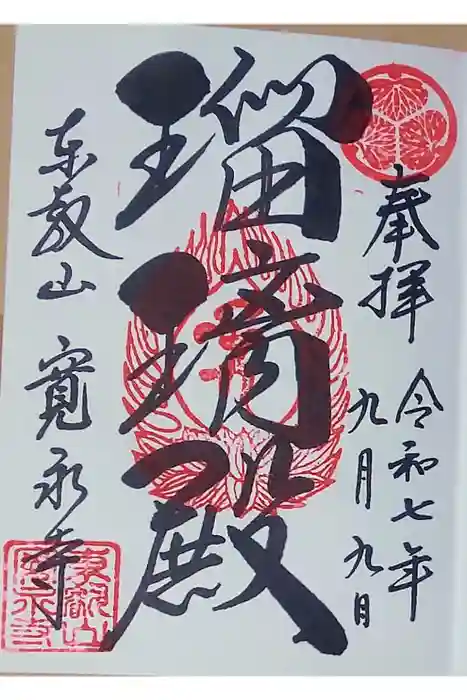 奉拝
令和七年
九月九日
瑠璃殿
東叡山 寛永寺
東叡山
寛永寺